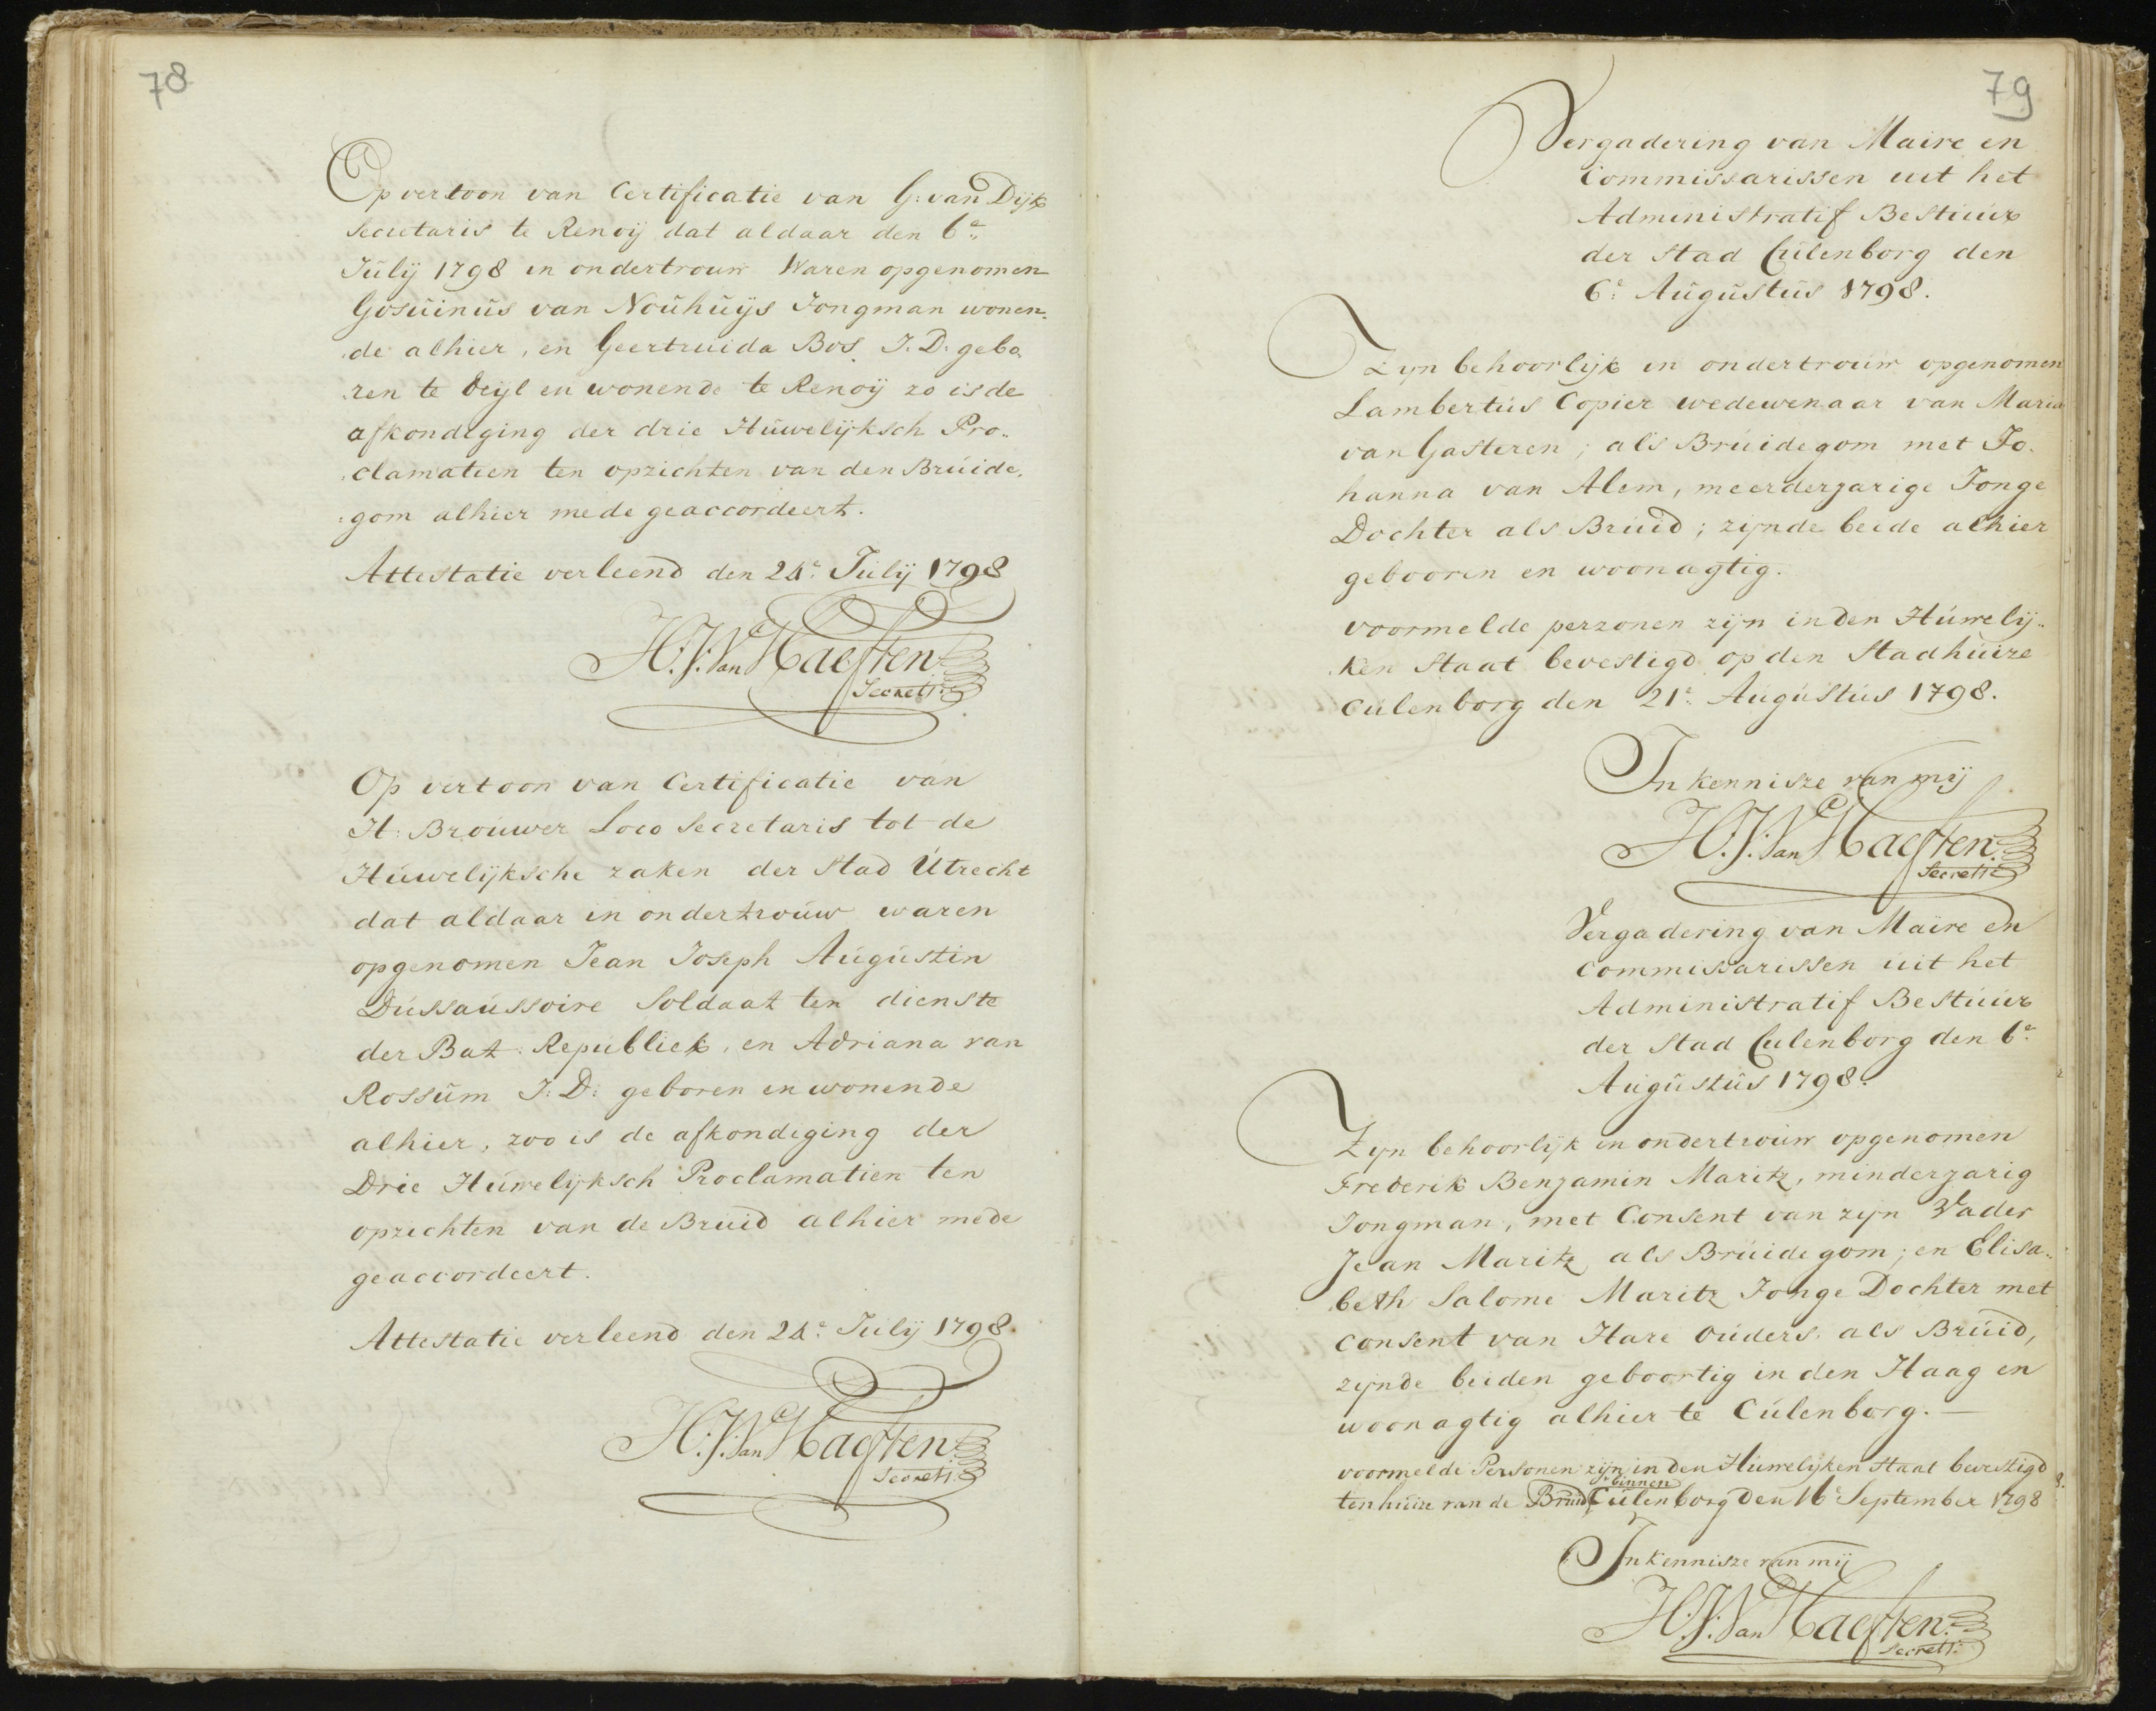 78
Op vertoon van Certificatie van G: van Dijk
secretaris te Renoij dat aldaar den 6e
Julij 1798 in ondertrouw Waren opgenomen
Gosuinus van Nouhuijs Jongman wonen-
de alhier, en Geertruida Bos J. D. gebo-
ren te Deijl en wonende te Renoij zo is de
afkondiging der drie Huwelijksch Pro-
clamatien ten opzichten van den Bruide-
gom alhier mede geaccordeert.
Attestatie verleend den 24e Julij 1798
H: J: Van Haeften
Secrets:
Op vertoon van Certificatie van
H: Brouwer Loco Secretaris tot de
Huwelijksche zaken der Stad Utrecht
dat aldaar in ondertrouw waren
opgenomen Jean Joseph Augustin
Dussaussoire Soldaat ten dienste
der Bat: Republiek, en Adriana van
Rossum J: D: geboren en wonende
alhier, zoo is de afkondiging der
Drie Huwelijksch Proclamatien ten
opzichten van de Bruid alhier mede
geaccordeert.
Attestatie verleend den 24e Julij 1798.
H: J: Van Haeften
Secrets:
79
Vergadering van Maire en
Commissarissen uit het
Administratif Bestuur
der Stad Culenborg den
6e Augustus 1798.
Zyn behoorlijk in ondertrouw opgenomen
Lambertus Copier wedewenaar van Maria
van Gasteren; als Bruidegom met Jo-
hanna van Alem, meerderjarige Jonge
Dochter als Bruid; zijnde beide alhier
gebooren en woonagtig.
voormelde perzonen zijn in den Huwelij-
ken Staat bevestigd op den Stadhuize
Culenborg den 21e Augustus 1798.
In kennisze van mij
H: J: Van Haeften
Secrets:
Vergadering van Maire en
Commissarissen uit het
Administratif Bestuur
der Stad Culenborg den 6e
Augustus 1798.
Zyn behoorlijk in ondertrouw opgenomen
Frederik Benjamin Maritz, minderjarig
Jongman, met Consent van zijn Vader
Jean Maritz als Bruidegom; en Elisa-
beth Salome Maritz Jonge Dochter met
consent van Hare Ouders als Bruid,
zijnde beiden geboortig in den Haag en
woonagtig alhier te Culenborg. —
voormelde Personen zijn in den Huwelijken Staat bevestigd
ten huize van de Bruid binnen Culenborg den 16e September 1798
In kennisze van mij
H: J: Van Haeften
Secrets: